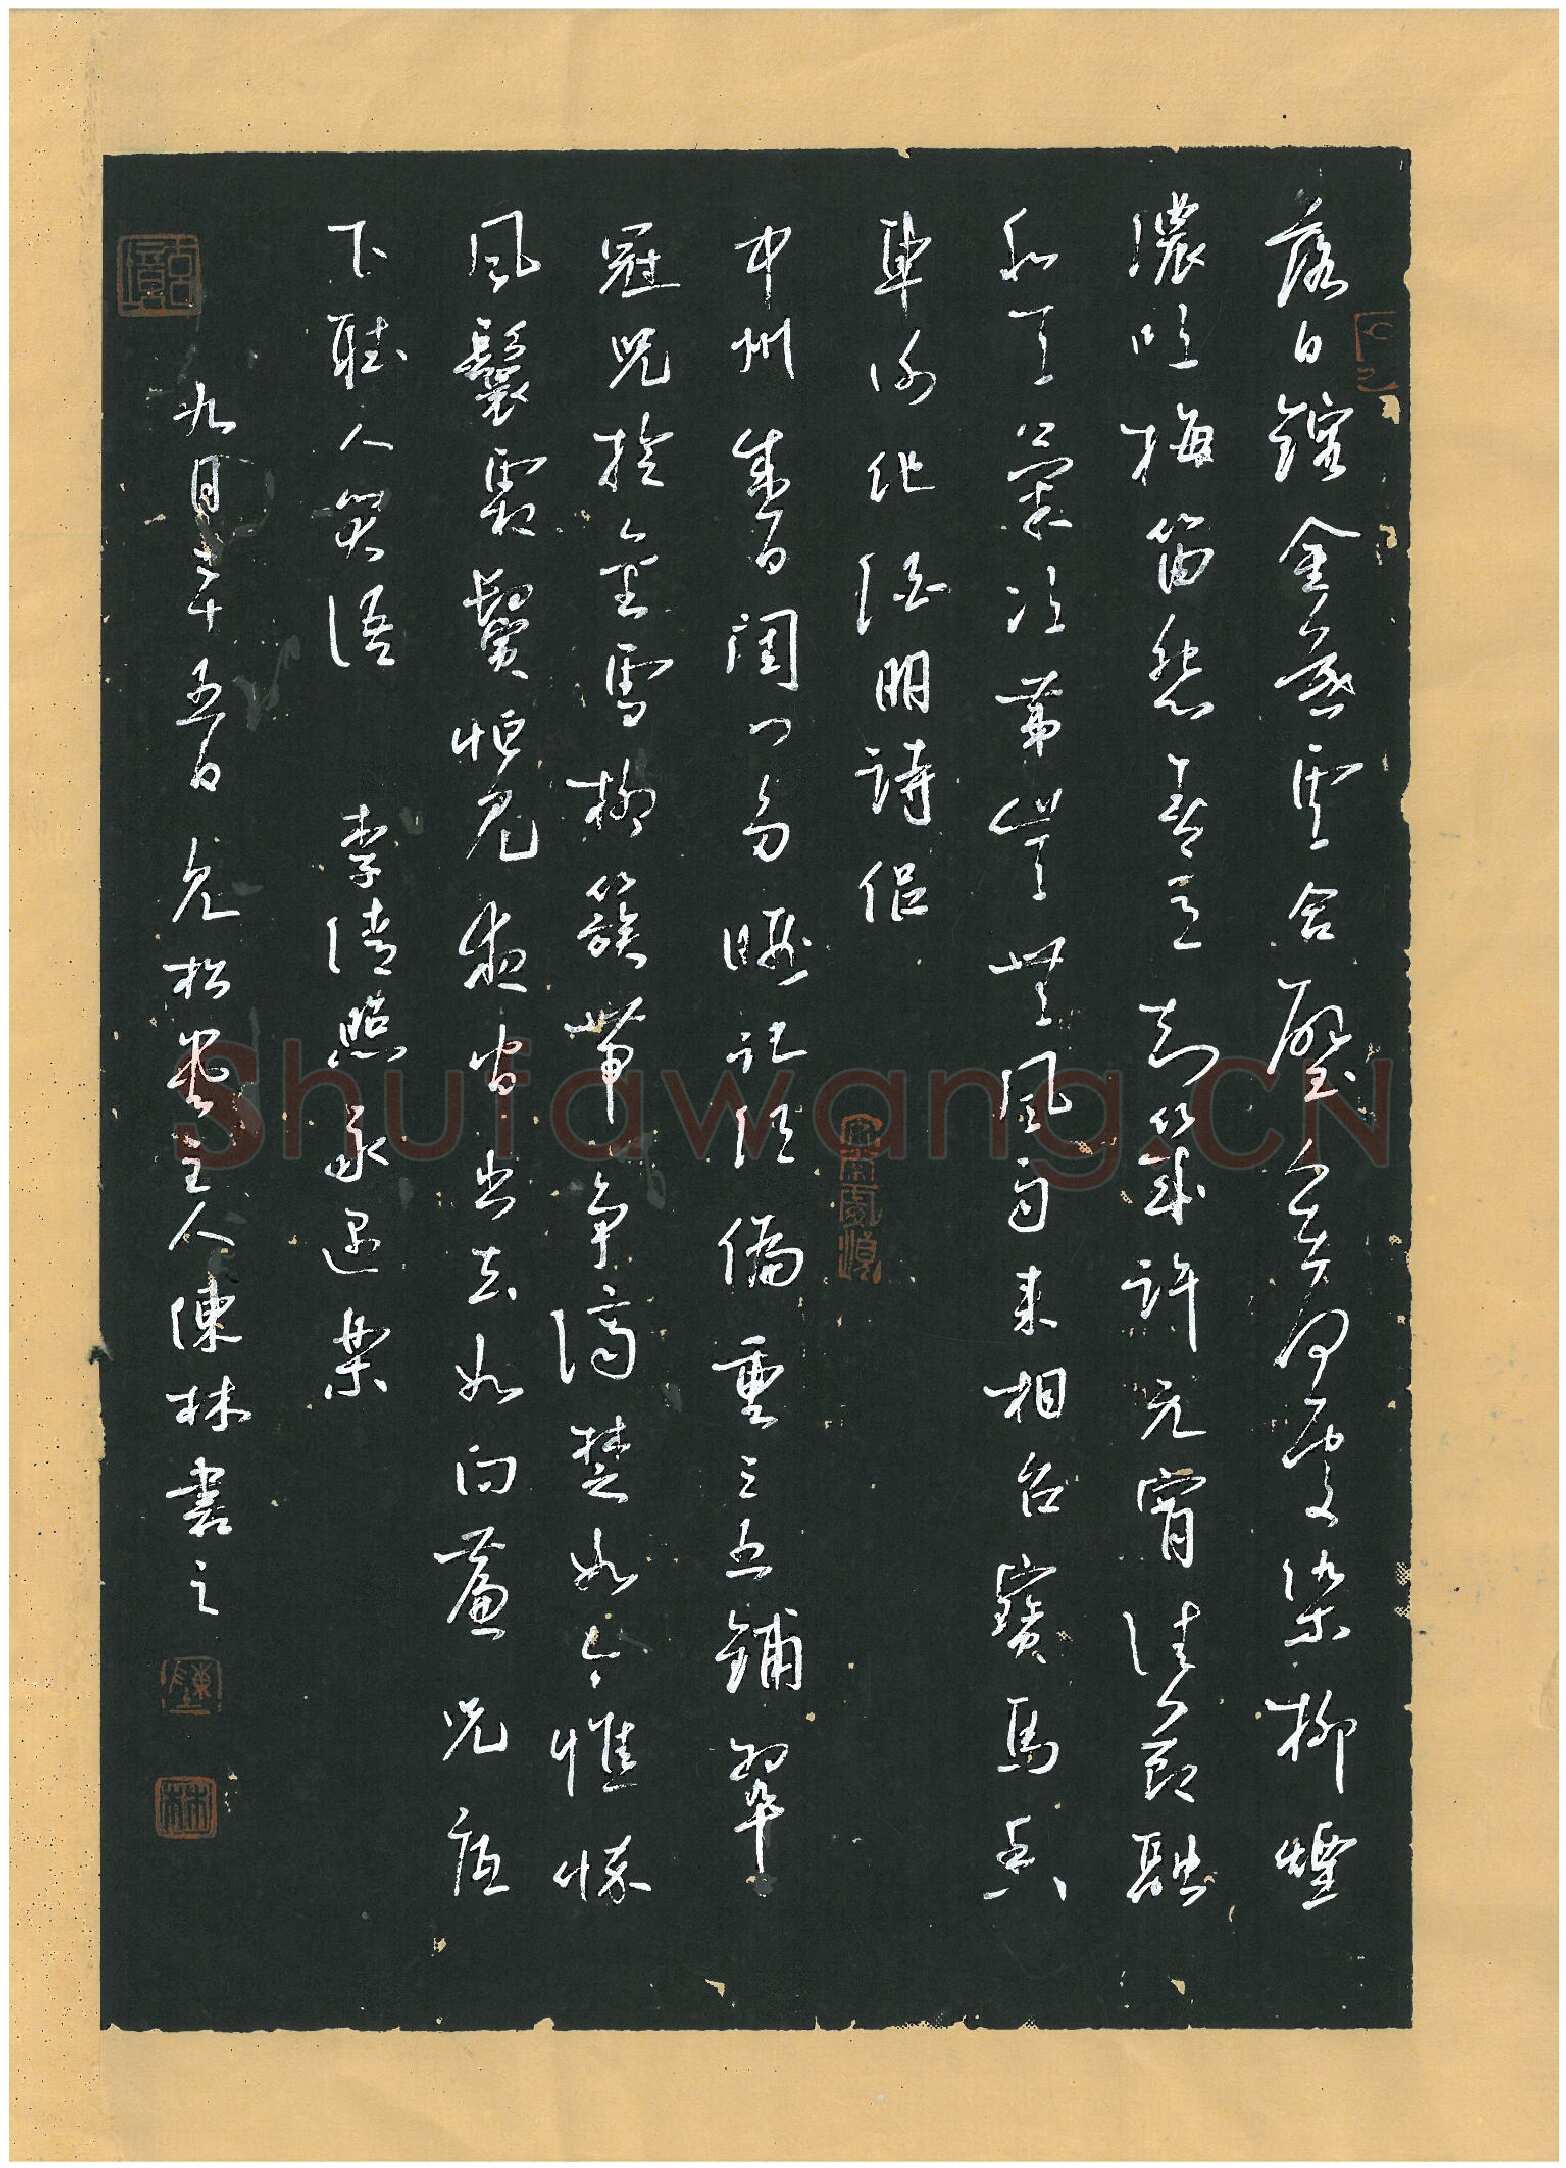 落日鎔金暮雲合璧人在何處染柳煙
濃吹梅笛怨春意知幾許元宵佳節融
和天氣次第豈無風雨來相召寶馬香
車謝他酒朋詩侶
中州盛日閨門多暇記得偏重三五鋪翠
冠兒撚金雪柳簇帶爭濟楚如今憔悴
風鬟霜鬢怕見夜間出去如向簾兒底
下聽人笑語 李清照永遇樂
九月二十五日見松堂主人陳林書之
陳
林
Shufawang.CN